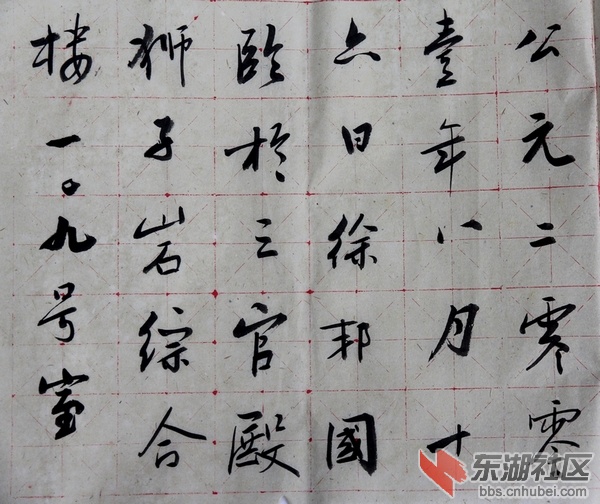 公元二零零
壹年八月十
六日徐邦國
臨於三官殿
狮子岩综合
楼一〇九号室
东湖社区
bbs.cnhubei.com